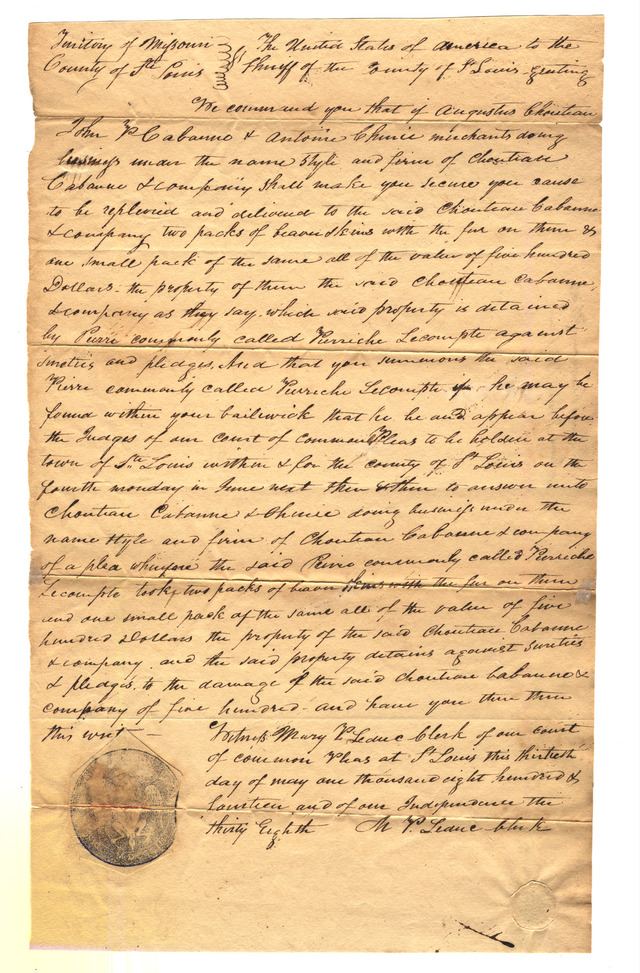 Territory of Missouri
County of Ste Louis
The United States of america to the
Sheriff of the County of St Louis greeting
We command you that if Augustus Choutiau
John P Cabanne & Antoine Chenie merchants doing
business under the name style and firm of Choutiau
Cabanne & company shall make you secure you cause
to be replevied and delivered to the said Choutiau Cabanne
& company two packs of beaver skins with the fur on them &
one small pack of the same all of the value of five hundred
Dollars - the property of them the said Choutiau Cabanne,
& company as they say. which said property is detained
by Pierre commonly called Pierriche Lecompte against
sureties and pledges, And that you summons the said
Pierre commonly called Pierriche Lecompte if he may be
found within your bailiwick that he be and appear before
the Judges of our court of common Pleas to be holden at the
town of Ste Louis within & for the county of St Louis on the
fourth monday in June next then & there to answer unto
Choutiau Cabanne & Chenie doing business under the
name style and firm of Choutiau Cabanne & company
of a plea wherefore the said Pierre commonly called Pierriche
Lecompte took two packs of beaver skins with the fur on them
and one small pack of the same all of the value of five
hundred Dollars the property of the said Choutiau Cabanne
& company. and the said property detains against sureties
& pledges. to the damage of the said Choutiau Cabanne &
company of five hundred - and have you then there
this writ -
Witness Mary P Leduc Clerk of our court
of common Pleas at St Louis this thirtieth
day of may one thousand eight hundred &
fourteen and of our Independence the
thirty Eighth
M P Leduc clerk